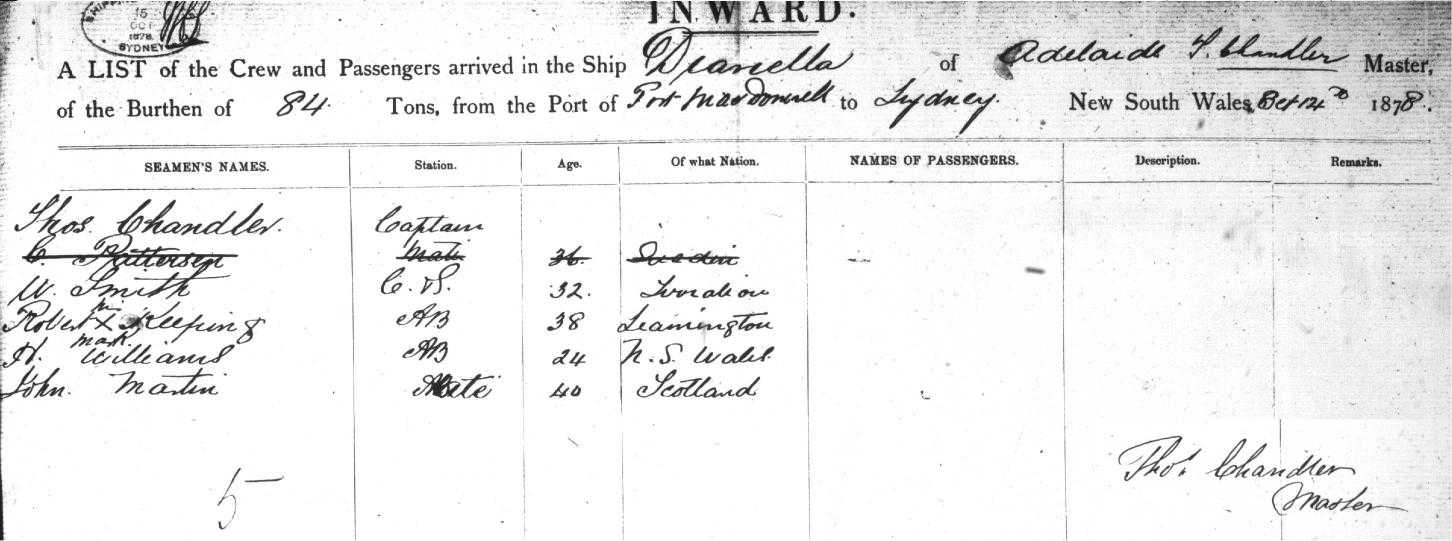 SHIPPI
15
OCT
1878
SYDNEY
INWARD.
A LIST of the Crew and Passengers arrived in the Ship Dianella of Adelaide T. Chandler Master,
of the Burthen of 84 Tons, from the Port of Port MacDonnell to Sydney. New South Wales, Oct 14th 1878.
SEAMEN'S NAMES. Station. Age. Of what Nation. NAMES OF PASSENGERS. Description. Remarks.
Thos. Chandler. Captain
C. Pattersen Mate 36. Sweden
W. Smith C. S. 32.
Robert X Keeping AB 38 Leamington
mark
H. Williams AB 24 N. S. Wales.
John. Martin Mate 40 Scotland
5
Thos. Chandler
Master